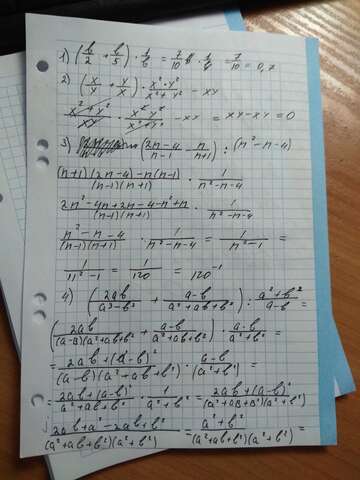 1) (b/2 + b/5) · 1/b = 7/10 b · 1/b = 7/10 = 0,7
2)
(x/y + y/x) · x²·y²/x²+y² - xy
x²+y²/xy · x²·y²/x²+y² - xy = xy-xy=0
3) (2n-4/n-1 - n/n+1) : (n²-n-4)
(n+1)(2n-4)-n(n-1)/(n-1)(n+1) · 1/n²-n-4
2n²-4n+2n-4-n²+n/(n-1)(n+1) · 1/n²-n-4
n²-n-4/(n-1)(n+1) · 1/n²-n-4 = 1/n²-1 =
1/11²-1 = 1/120 = 120⁻¹
4) (2ab/a³-b³ + a-b/a²+ab+b²) : a²+b²/a-b =
(2ab/(a-b)(a²+ab+b²) + a-b/a²+ab+b²) · a-b/a²+b² =
= 2ab+(a-b)²/(a-b)(a²+ab+b²) · a-b/(a²+b²) =
= 2ab+(a-b)²/a²+ab+b² · 1/a²+b² = 2ab+(a-b)²/(a²+ab+b²)(a²+b²)
2ab+a²-2ab+b²/(a²+ab+b²)(a²+b²) = a²+b²/(a²+ab+b²)(a²+b²) =